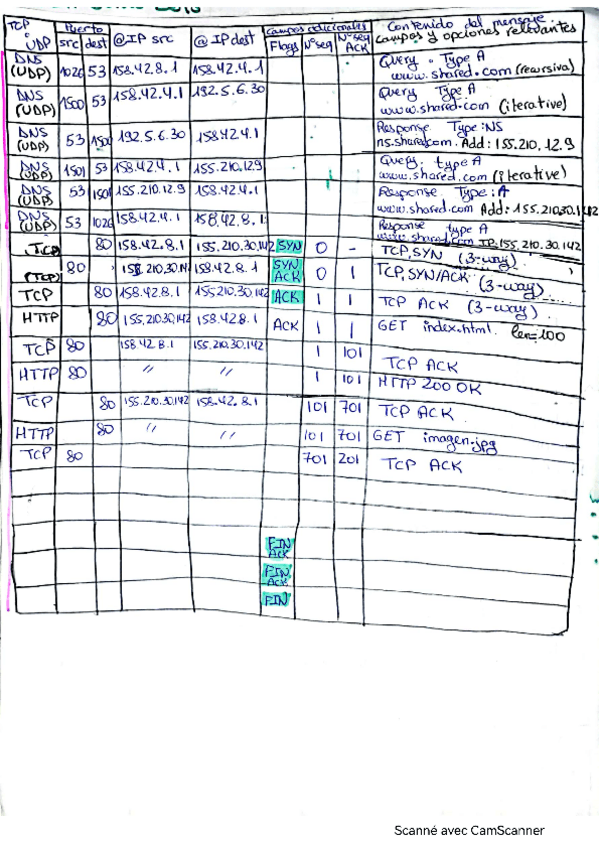 TCP ó UDP | Puerto src | dest | @IP src | @IP dest | campos adicionales Flags | Nº seq | Nº seq ACK | Contenido del mensaje campos y opciones relevantes
DNS (UDP) 1026 53 158.42.8.1 158.42.4.1 Query Type A www.shared.com (recursiva)
DNS (UDP) 1500 53 158.42.4.1 192.5.6.30 Query Type A www.shared.com (iterative)
DNS (UDP) 53 1500 192.5.6.30 158.42.4.1 Response Type:NS ns.shared.com. Add: 155.210.12.9
DNS (UDP) 1501 53 158.42.4.1 155.210.12.9 Query. type A www.shared.com (iterative)
DNS (UDP) 53 1501 155.210.12.9 158.42.4.1 Response Type: A www.shared.com Add: 155.210.30.142
DNS (UDP) 53 1026 158.42.4.1 158.42.8.1 Response type A www.shared.com IP: 155.210.30.142
(TCP) 80 158.42.8.1 155.210.30.142 SYN 0 - TCP, SYN (3-way)
(TCP) 80 155.210.30.142 158.42.8.1 SYN ACK 0 1 TCP, SYN/ACK (3-way)
TCP 80 158.42.8.1 155.210.30.142 ACK 1 1 TCP ACK (3-way)
HTTP 80 155.210.30.142 158.42.8.1 ACK 1 1 GET index.html len=100
TCP 80 158.42.8.1 155.210.30.142 1 101 TCP ACK
HTTP 80 " " 1 101 HTTP 200 OK
TCP 80 155.210.30.142 158.42.8.1 101 701 TCP ACK
HTTP 80 " " 101 701 GET imagen.jpg
TCP 80 701 201 TCP ACK
FIN ACK
FIN ACK
FIN
Scanné avec CamScanner